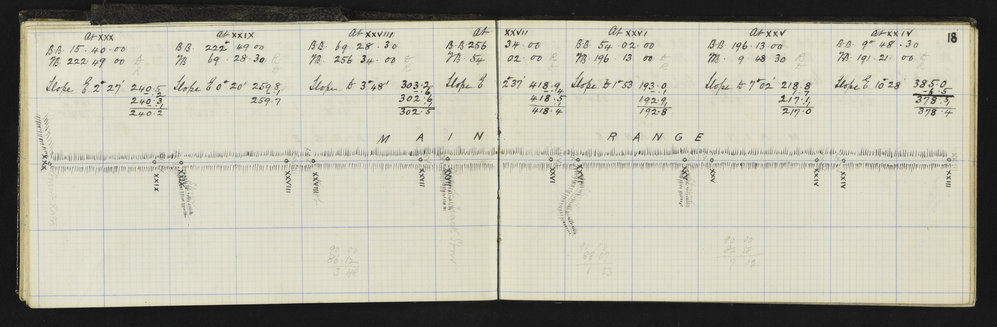 18
At XXX
B.B. 15.40.00
FB. 222 49 00
Slope E 2° 27' 240.5
.2
240.3
.1
240.2
At XXIX
B.B. 222° 49 00
FB 69.28.30
Slope E 0° 20' 259.8
.1
259.7
At XXVIII
B.B. 69.28.30
FB. 256 34.00
Slope D 3° 48' 303.2
.6
302.6
.1
302.5
At XXVII
B.B 256 34.00
FB. 54 02.00
Slope E 2° 37' 418.9
.4
418.5
.1
418.4
At XXVI
B.B. 54.02.00
FB. 196.13 00
Slope D 1° 53 193.0
.1
192.9
.1
192.8
At XXV
B.B. 196.13.00
FB. 9 48 30
Slope D 7° 02' 218.8
1.7
217.1
.1
217.0
At XXIV
B.B. 9° 48.30
FB. 191.21 00
Slope E 10° 28' 385.0
6.5
378.5
.1
378.4
MAIN RANGE
XXX
XXIX
XXIX
XXVIII
XXVIII
XXVII
XXVII
XXVI
XXVI
XXV
XXV
XXIV
XXIV
XXIII
90 00
86.12
3 48
90 00
88 07
1 53